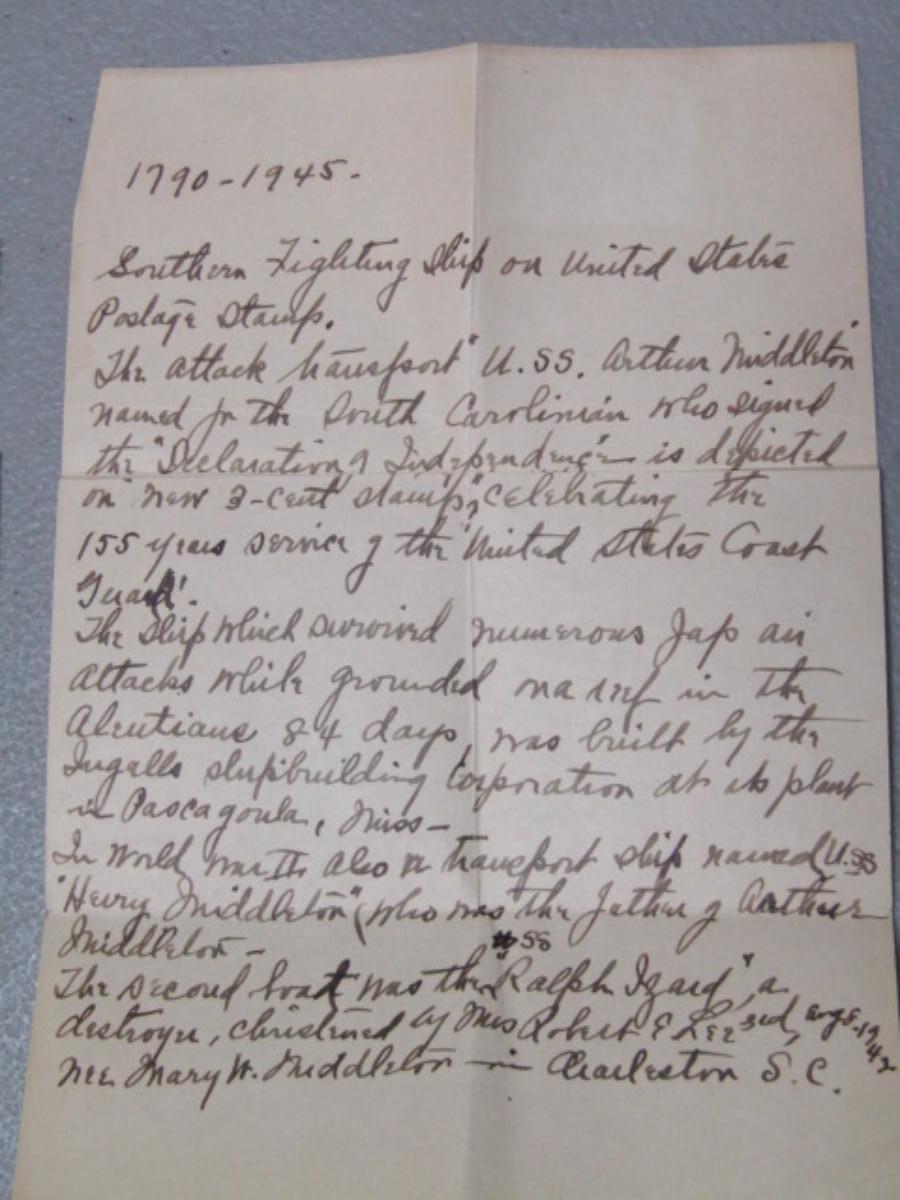 1790-1945.
Southern Fighting Ship on United States
Postage Stamp.
The attack transport "U.SS. Arthur Middleton"
named for the South Carolinian who signed
the "Declaration of Independence" is depicted
on new 3-cent stamps, celebrating the
155 years service of the "United States Coast
Guard".
The Ship which survived numerous Jap air
attacks while grounded on a reef in the
Aleutians 84 days, was built by the
Ingalls shipbuilding Corporation at its plant
in Pascagoula, Miss-
In World War II also a transport ship named U.SS
"Henry Middleton" (who was the father of Arthur
Middleton-
SS
The second boat was the "Ralph Izard", a
destroyer, christened by Mrs Robert E Lee 3rd, 1942
nee Mary W. Middleton - in Charleston S.C.